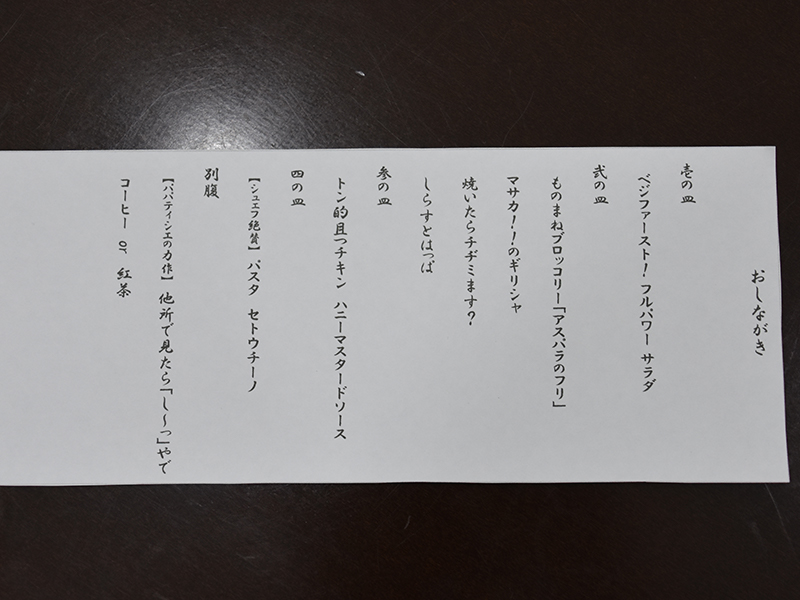 おしながき
壱の皿
ベジファースト！フルパワー サラダ
弐の皿
ものまねブロッコリー「アスパラのフリ」
マサカ！！のギリシャ
焼いたらチヂミます？
しらすとはっぱ
参の皿
トン的且つチキン ハニーマスタードソース
四の皿
【シェフ絶賛】パスタ セトウチーノ
別腹
【パパティシエの力作】他所で見たら「し～っ」やで
コーヒー or 紅茶